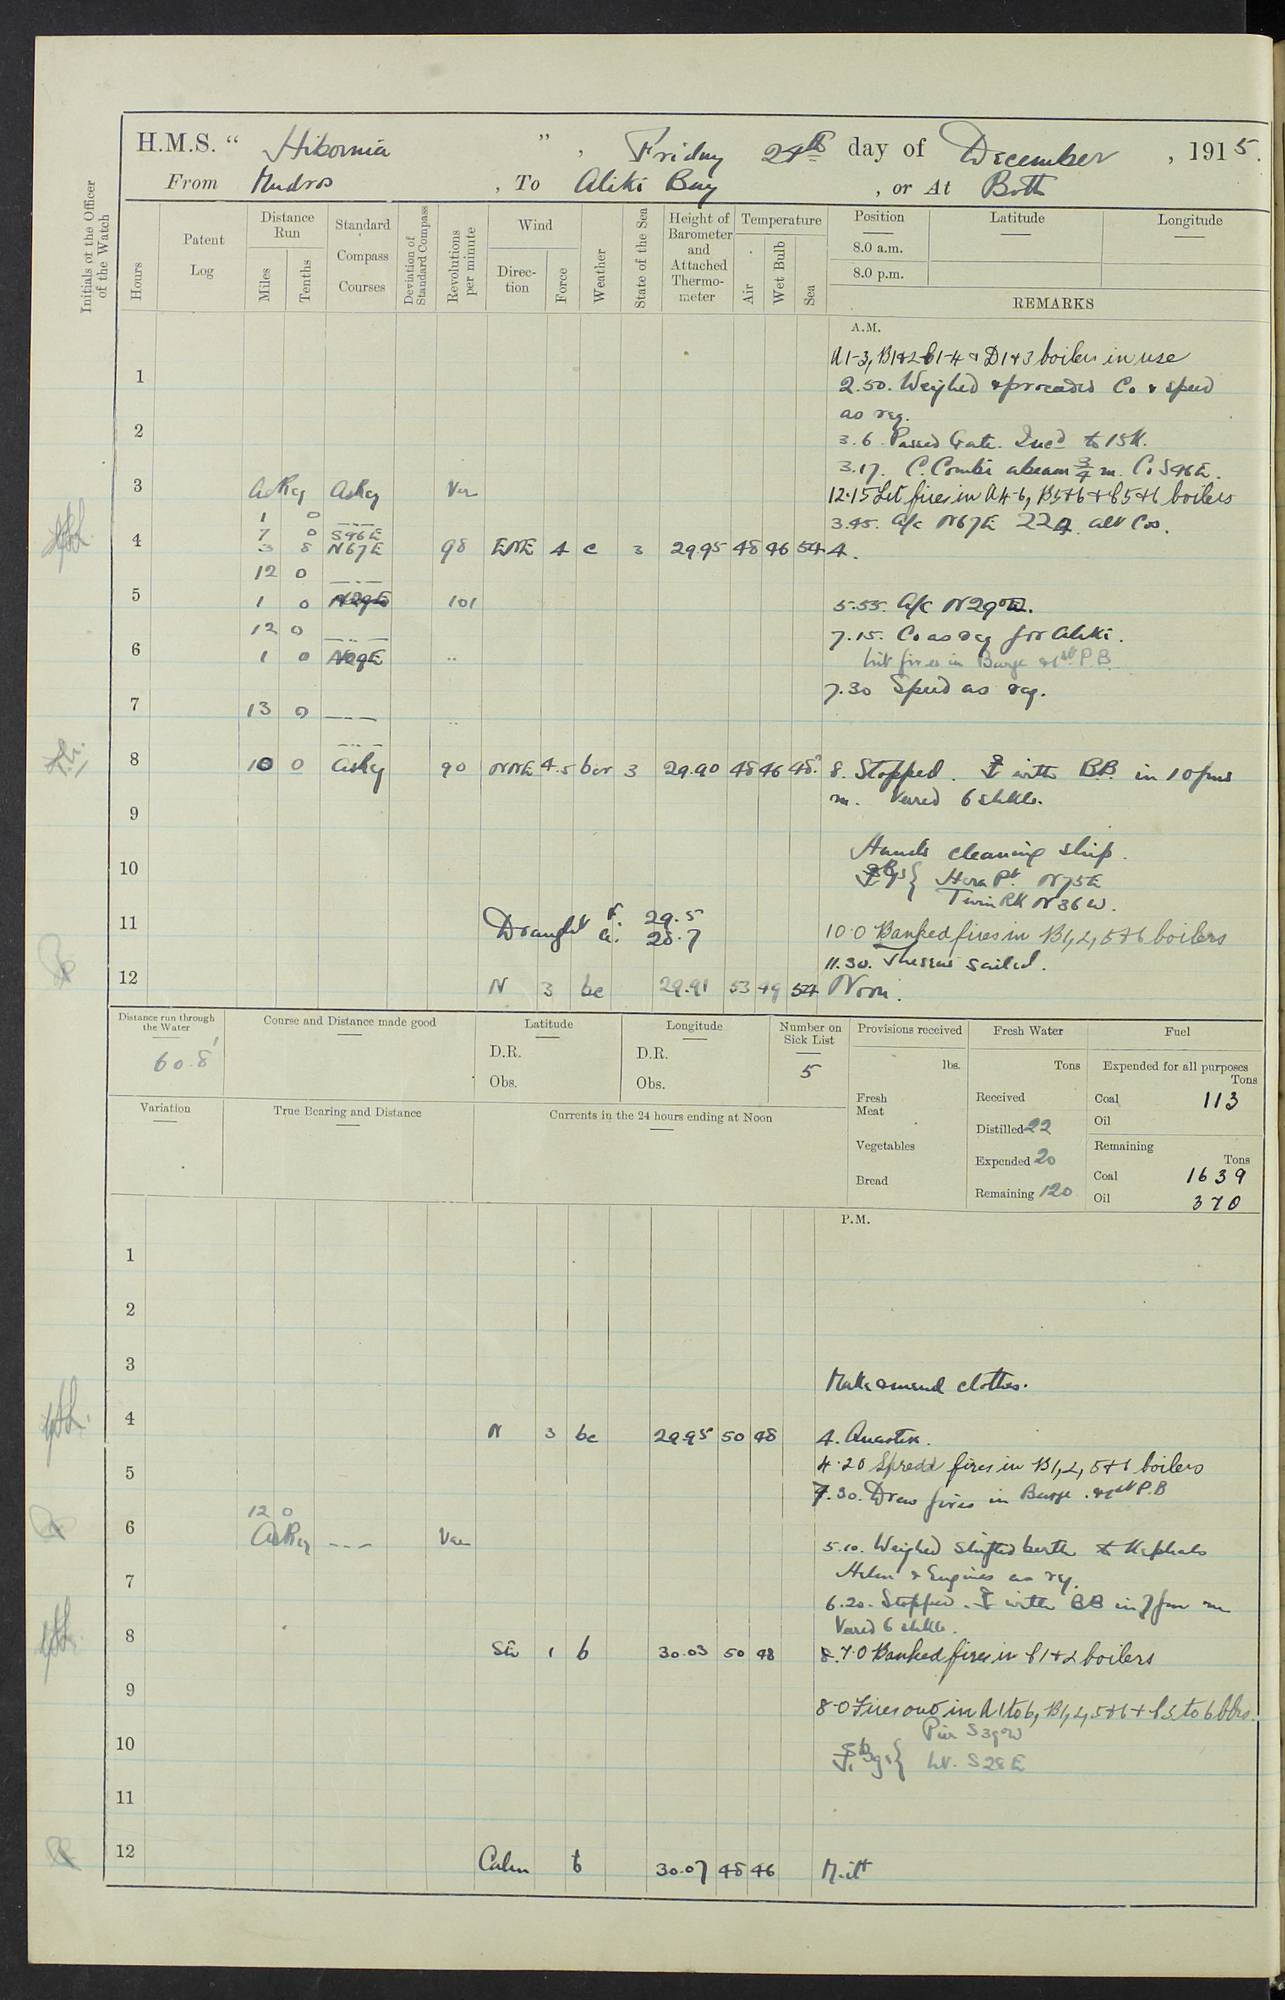 H.M.S. “ Hibernia ” , Friday 24th day of December , 1915.
From Mudros , To Aliki Bay , or At Both
Initials of the Officer of the Watch
Hours
Patent Log
Distance Run
Miles
Tenths
Standard Compass Courses
Deviation of Standard Compass
Revolutions per minute
Wind
Direction
Force
Weather
State of the Sea
Height of Barometer and Attached Thermometer
Temperature
Air
Wet Bulb
Sea
Position Latitude Longitude
8.0 a.m.
8.0 p.m.
REMARKS
A.M.
A1-3, B1&2 C1-4 & D1&3 boilers in use
1
2.50. Weighed & proceeded Co & speed
as req.
2
3.6. Passed Gate. Incd to 15K.
3.17. C. Combi abeam 3/4 m. Co S46E.
3 As Req As Req Var
12.15 Lit fires in A4-6, B5&6 & C5&6 boilers
1 0 - - -
3.45. A/c N67E 224 alt Cos.
7 0 S46E
4 3 8 N67E 98 ENE 4 c 3 29.95 48 46 54 4.
12 0 - - -
5 1 0 N29E 101 5.55. A/c N29W.
12 0 - - -
7.15. Co as req for Aliki.
6 1 0 N29E ..
Lit fires in Barge & 1st P.B.
7.30 Speed as req.
7 13 0 - - - ..
- - -
8 10 0 As Req 90 NNE 4.5 bcr 3 29.90 48 46 48 8. Stopped. ⚓ with B.B. in 10 fms
m. Veered 6 shkls.
9
Hands cleaning ship.
10 ⚓ Bgs { Hera Pt. N75E
Twin Rk N36W.
11 Draught F. 29.5
A. 28.7
10.0 Banked fires in B1, 2, 5 & 6 boilers
11.30. Theseus sailed.
12 N 3 bc 29.91 53 49 54 Noon.
Distance run through the Water
60.8'
Course and Distance made good
Latitude
D.R.
Obs.
Longitude
D.R.
Obs.
Number on Sick List
5
Provisions received
lbs.
Fresh Meat
Vegetables
Bread
Fresh Water
Tons
Received
Distilled 22
Expended 20
Remaining 120
Fuel
Expended for all purposes
Tons
Coal 113
Oil
Remaining
Tons
Coal 1639
Oil 370
Variation
True Bearing and Distance
Currents in the 24 hours ending at Noon
P.M.
1
2
3
Make & mend clothes.
4 N 3 bc 29.95 50 48 4. Quarters.
4.20 Spread fires in B1, 2, 5 & 6 boilers
5
7.30. Drew fires in Barge & 1st P.B
12 0
6 As Req - - - Var
5.10. Weighed shifted berth to Kephalo
Helm & Engines as req.
7
6.20. Stopped. ⚓ with BB in 7 fms m
Veered 6 shkls.
8 SW 1 b 30.03 50 48 8. 7.0 Banked fires in C1&2 boilers
9
8.0 Fires out in A1 to 6, B1, 2, 5 & 6 & C3 to 6 blrs.
Pier S39W
10 ⚓ Bgs { Lt. S28E
11
12 Calm b 30.07 48 46 M.nt